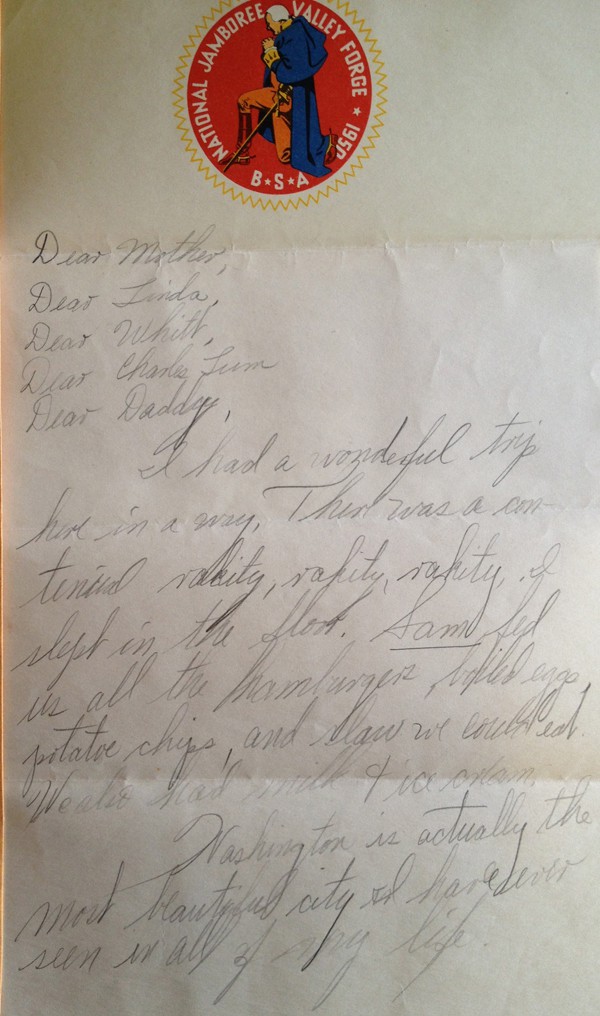 NATIONAL JAMBOREE VALLEY FORGE ★ 1950
B★S★A
Dear Mother,
Dear Linda,
Dear Whitt,
Dear Charles Lum
Dear Daddy,
I had a wonderful trip
here in a way. Ther was a con-
tenial rakity, rakity, rakity. I
slept in the floor. Sam fed
us all the hamburgers, boiled eggs,
potatoe chips, and slaw we could eat.
We also had milk & ice cream.
Washington is actually the
most beautiful city I have ever
seen in all of my life.